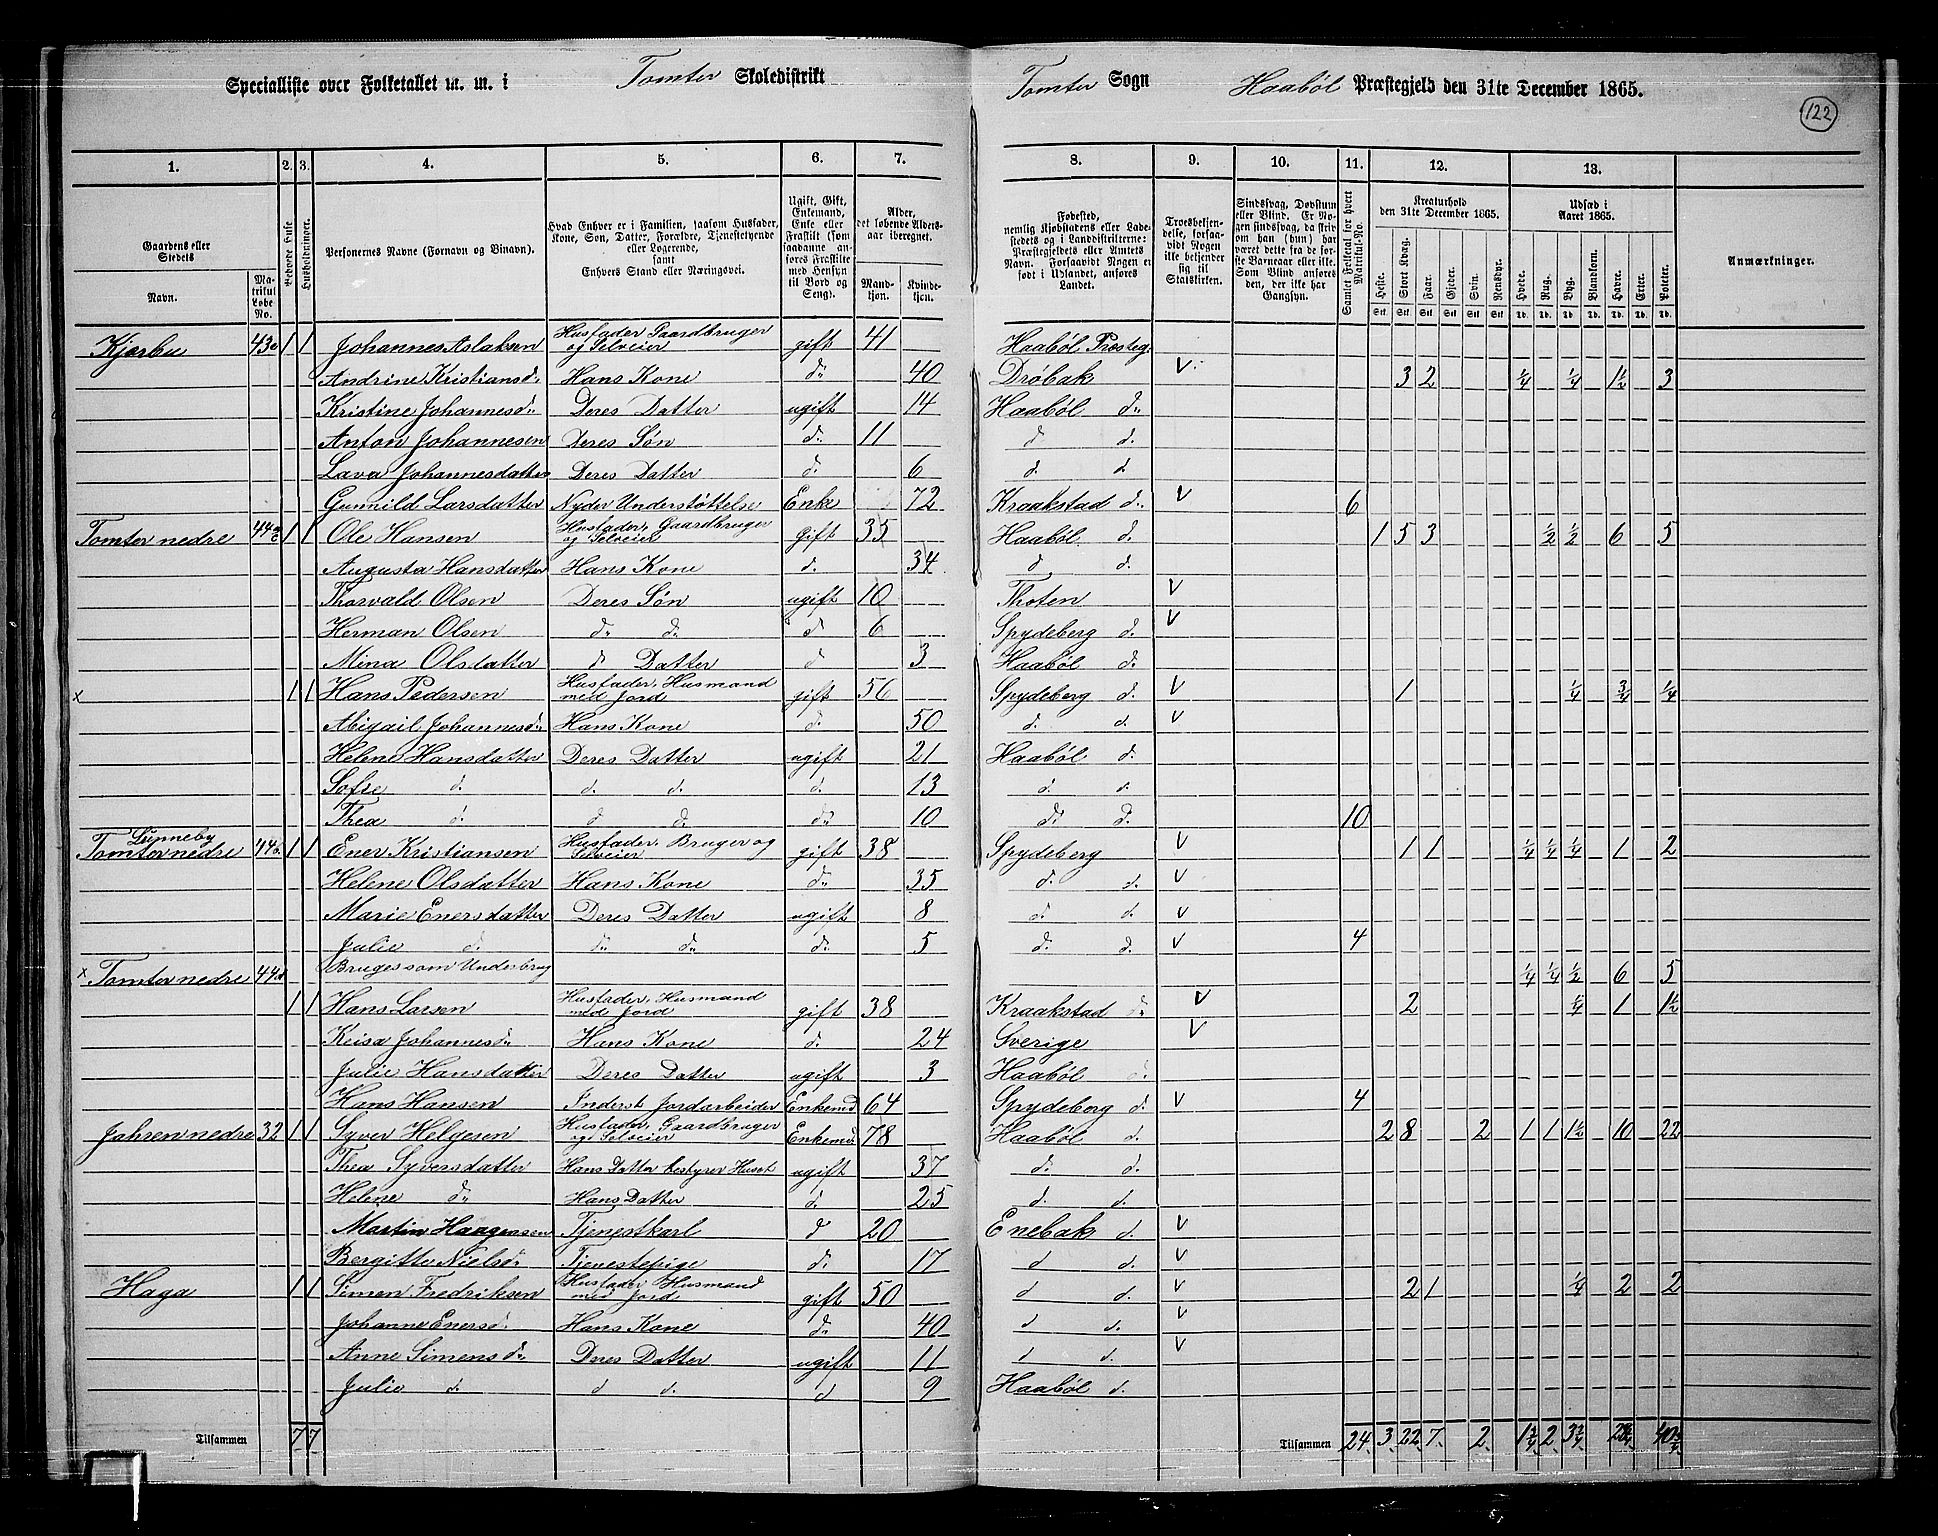 Specialliste over Folketallet m. m. i Tomter Skoledistrikt Tomter Sogn Haabøl Præstegjeld den 31te December 1865.
122
1. 2. 3. 4. 5. 6. 7. 8. 9. 10. 11. 12. 13.
Gaardens eller Stedets
Navn.
Matrikul Løbe No.
Beboede Huse
Husholdninger.
Personernes Navne (Fornavn og Binavn).
Hvad Enhver er i Familien, saasom Husfader, Kone, Søn, Datter, Forældre, Tjenestetyende eller Logerende, samt Enhvers Stand eller Næringsvei.
Ugift, Gift, Enkemand, Enke eller Fraskilt (som saadanne anføres Fraskilte med Hensyn til Bord og Seng).
Alder, det løbende Alders-aar iberegnet.
Mandkjøn. Kvindekjøn.
Fødested, nemlig Kjøbstadens eller Ladestedets og i Landdistrikterne: Præstegjeldets eller Amtets Navn. Forsaavidt Nogen er født i Udlandet, anføres Landet.
Troesbekjendelse, forsaavidt Nogen ikke bekjender sig til Statskirken.
Sindssvag, Døvstum eller Blind. Er Nogen sindssvag, da skriv om han (hun) har været dette fra de første Barneaar eller ikke. Som Blind anføres den, der ikke har Gangsyn.
Samlet Folketal for hvert Matrikul-No.
Kreaturhold den 31te December 1865.
Heste. Stort Kvæg. Faar. Gjeder. Svin. Rensdyr.
Stk. Stk. Stk. Stk. Stk. Stk.
Udsæd i Aaret 1865.
Hvede. Rug. Byg. Blandkorn. Havre. Erter. Poteter.
Td. Td. Td. Td. Td. Td. Td.
Anmærkninger.
Kjærbu 43c 1 1 Johannes Aslaksen Husfader Gaardbruger og Selveier gift 41 Haabøl Præsteg.
Andrine Kristiansd: Hans Kone d: 40 Drøbak V 3 2 1/4 1/4 1 1/2 3
Kristine Johannesd: Deres Datter ugift 14 Haabøl d:
Anton Johannesen Deres Søn d: 11 d d.
Lava Johannesdatter Deres Datter d. 6 d. d
Gunnild Larsdatter Nyder Understøttelse Enke 72 Kraakstad d: V 6
Tomter nedre 44 1 1 Ole Hansen Husfader, Gaardbruger og Selveier Gift 35 Haabøl d. 1 5 3 1/2 1/2 6 5
Augusta Hansdatter Hans Kone d. 34 d d.
Thorvald Olsen Deres Søn ugift 10 Thoten V
Herman Olsen d: d: d 6 Spydeberg d. V
Mina Olsdatter d Datter d 3 Haabøl d.
x 1 1 Hans Pedersen Husfader, Husmand med Jord gift 56 Spydeberg d. V 1 1/4 3/4 1/4
Abigail Johannesd: Hans Kone d. 50 d. d. V
Helene Hansdatter Deres Datter ugift 21 Haabøl d.
Sofie d. d. d. d. 13 d. d.
Thea d. d d. d: 10 d. d. 10
Lunneby
Tomter nedre 44 1 1 Ener Kristiansen Husfader, Bruger og Selveier gift 38 Spydeberg V 1 1 1/4 1/4 1/4 1 2
Helene Olsdatter Hans Kone d: 35 d. d. V
Marie Enersdatter Deres Datter ugift 8 d. d. V
Julie d. d: d: d. 5 d. d. V 4
x Tomter nedre 44d Bruges som Underbrug 1/4 1/4 1/2 6 5
1 1 Hans Larsen Husfader, Husmand med Jord gift 38 Kraakstad d: V 2 1/4 1 1 1/2
Keisa Johannesd: Hans Kone d. 24 Sverige V
Julie Hansdatter Deres Datter ugift 3 Haabøl d.
Hans Hansen Inderst Jordarbeider Enkemd 64 Spydeberg d. V 4
Jahren nedre 32 1 1 Syver Helgesen Husfader, Gaardbruger og Selveier Enkemd 78 Haabøl d. 2 8 2 1 1 1 1/2 10 22
Thea Syversdatter Hans Datter bestyrer Huset ugift 37 d. d.
Helene d: Hans Datter d. 25 d. d.
Martin Haagensen Tjenestkarl d 20 Enebak d. V
Bergitte Nielsd: Tjenestepige d: 17 d d. V
Haga 1 1 Simen Fredriksen Husfader Husmand med Jord gift 50 d d. V 2 1 1/4 2 2
Johanne Enersd. Hans Kone d: 40 d d. V
Anne Simensd: Deres Datter ugift 11 d d. V
Julie d. d d. d 9 Haabøl d.
Tilsammen 7 7 Tilsammen 24 3 22 7 2 1 3/4 2 3 3/4